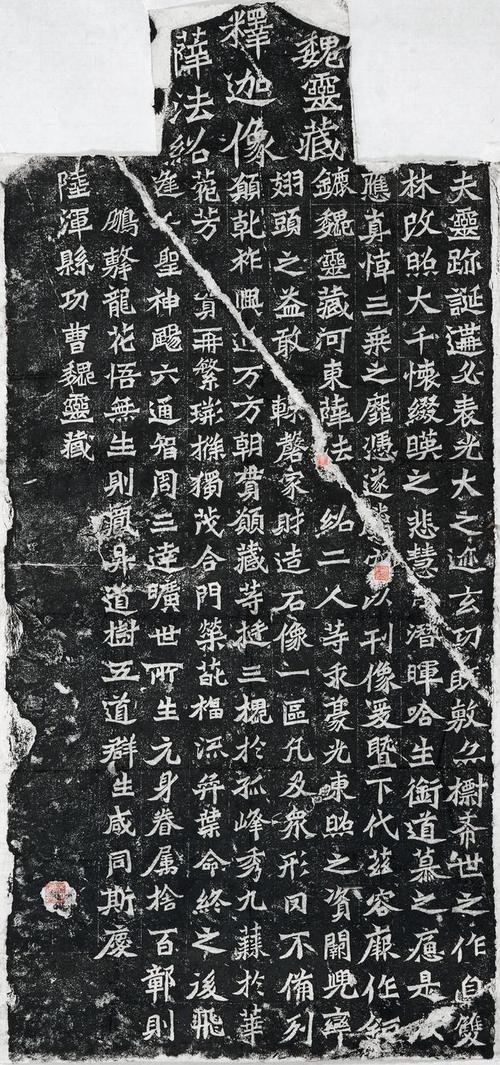 魏靈藏
釋迦像
薛法紹
夫靈跡誕遘必表光大之迹玄功既敷亦標希世之作自雙
林改照大千懷綴暎之悲慧潛暉唅生銜道慕之痛是
應真悼三乘之靡憑遂以刊像爰暨下代茲容厥作鉅
鏕魏靈藏河東薛法紹二人等求豪光東照之資闕兜率
翅頭之益敢輒罄家財造石像一區凡及眾形罔不備列
願乾祚興延万方朝貫願藏等挺三槐於孤峰秀九蕀於華
菀芳實再繁琳條獨茂合門榮葩福流弈葉命終之後飛
逢千聖神颺六通智周三達曠世所生元身眷属捨百鄣則
鵬擊龍花悟無生則鳳昇道樹五道群生咸同斯慶
陸渾縣功曹魏靈藏